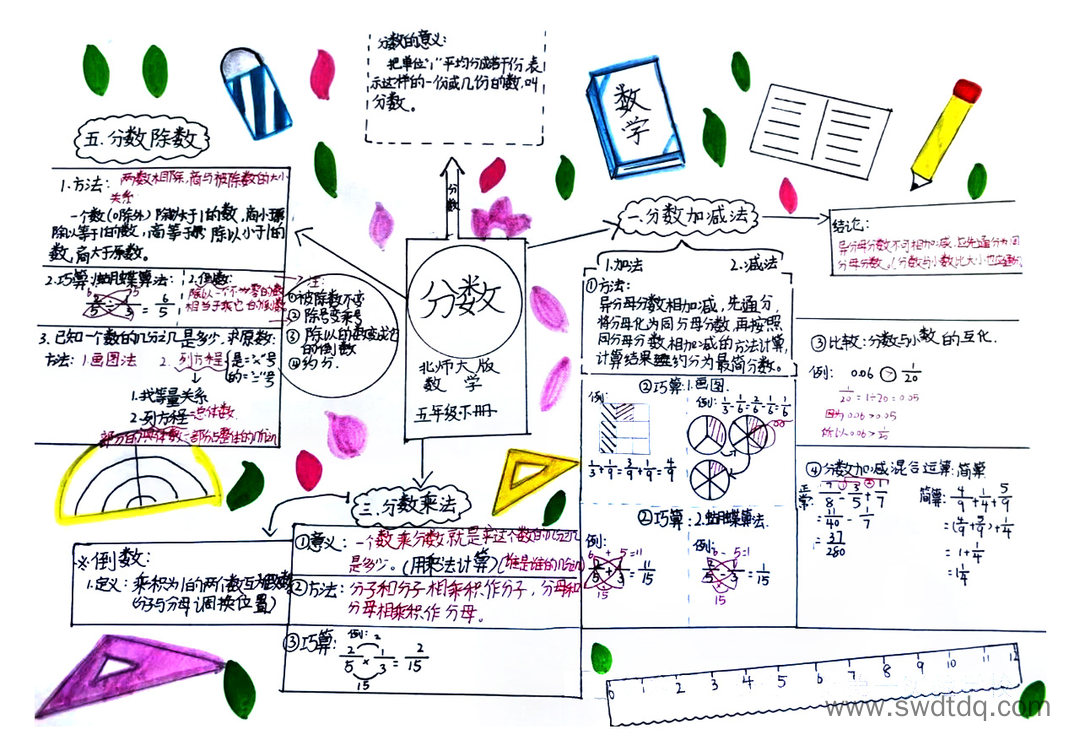 分数的意义:
把单位"1"平均分成若干份,表
示这样的一份或几份的数,叫
分数。
分数
分数
北师大版
数 学
五年级下册
数学
一.分数加减法
1.加法 2.减法
①方法:
异分母分数相加减,先通分,
将分母化为同分母分数,再按照
同分母分数相加减的方法计算,
计算结果 约分为最简分数。
②巧算:1.画图.
例:
1/3+1/9=3/9+1/9=4/9
例: 1/3-1/6=2/6-1/6=1/6
②巧算: 2.蝴蝶算法.
例:
6 + 5=11
2/5+1/3=11/15
15
例:
6 - 5=1
2/5-1/3=1/15
15
结论:
异分母分数不可相加减,应先通分为同
分母分数。
③比较:分数与小数的互化.
例: 0.06 > 1/20
1/20=1÷20=0.05
因为0.06>0.05
所以0.06>1/20
④分数加减混合运算:简算
正常:
7/8-3/5+1/7
=11/40-1/7
=37/280
简算: 4/9+1/4+5/9
=(4/9+5/9)+1/4
=1+1/4
=1 1/4
三.分数乘法
①意义:一个数乘分数就是求这个数的几分之几
是多少。(用乘法计算)(谁是谁的几分之几)
②方法:分子和分子相乘积作分子,分母和
分母相乘积作分母。
③巧算:
例: 2
2/5×1/3=2/15
15
※倒数:
1.定义:乘积为1的两个数互为倒数
(分子与分母调换位置)
五.分数除数
1.方法: 两数相除,商与被除数的大小
关系
一个数(0除外)除以大于1的数,商小于
除以等于1的数,商等于 除以小于1的
数,商大于原数。
2.巧算:蝴蝶算法:
6 5
=6/5
2.倒数:
除以一个不为零的数
相当于乘它的倒数
注:
①被除数不变
②除号变乘号
③除以的数变成它
的倒数
④约分.
3.已知一个数的几分之几是多少.求原数:
方法: 1.画图法 2.列方程 是="="号
的="×"号
1.找等量关系
2.列方程
0 1 2 3 4 5 6 7 8 9 10 11 12
www.swdtdq.com